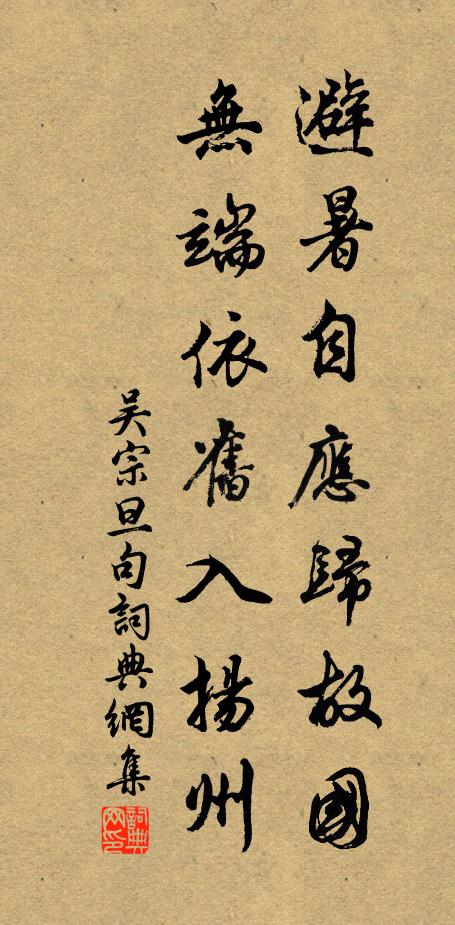 避暑自應歸故國
無端依舊入揚州
吴宗旦句詞典網集
詞典网印